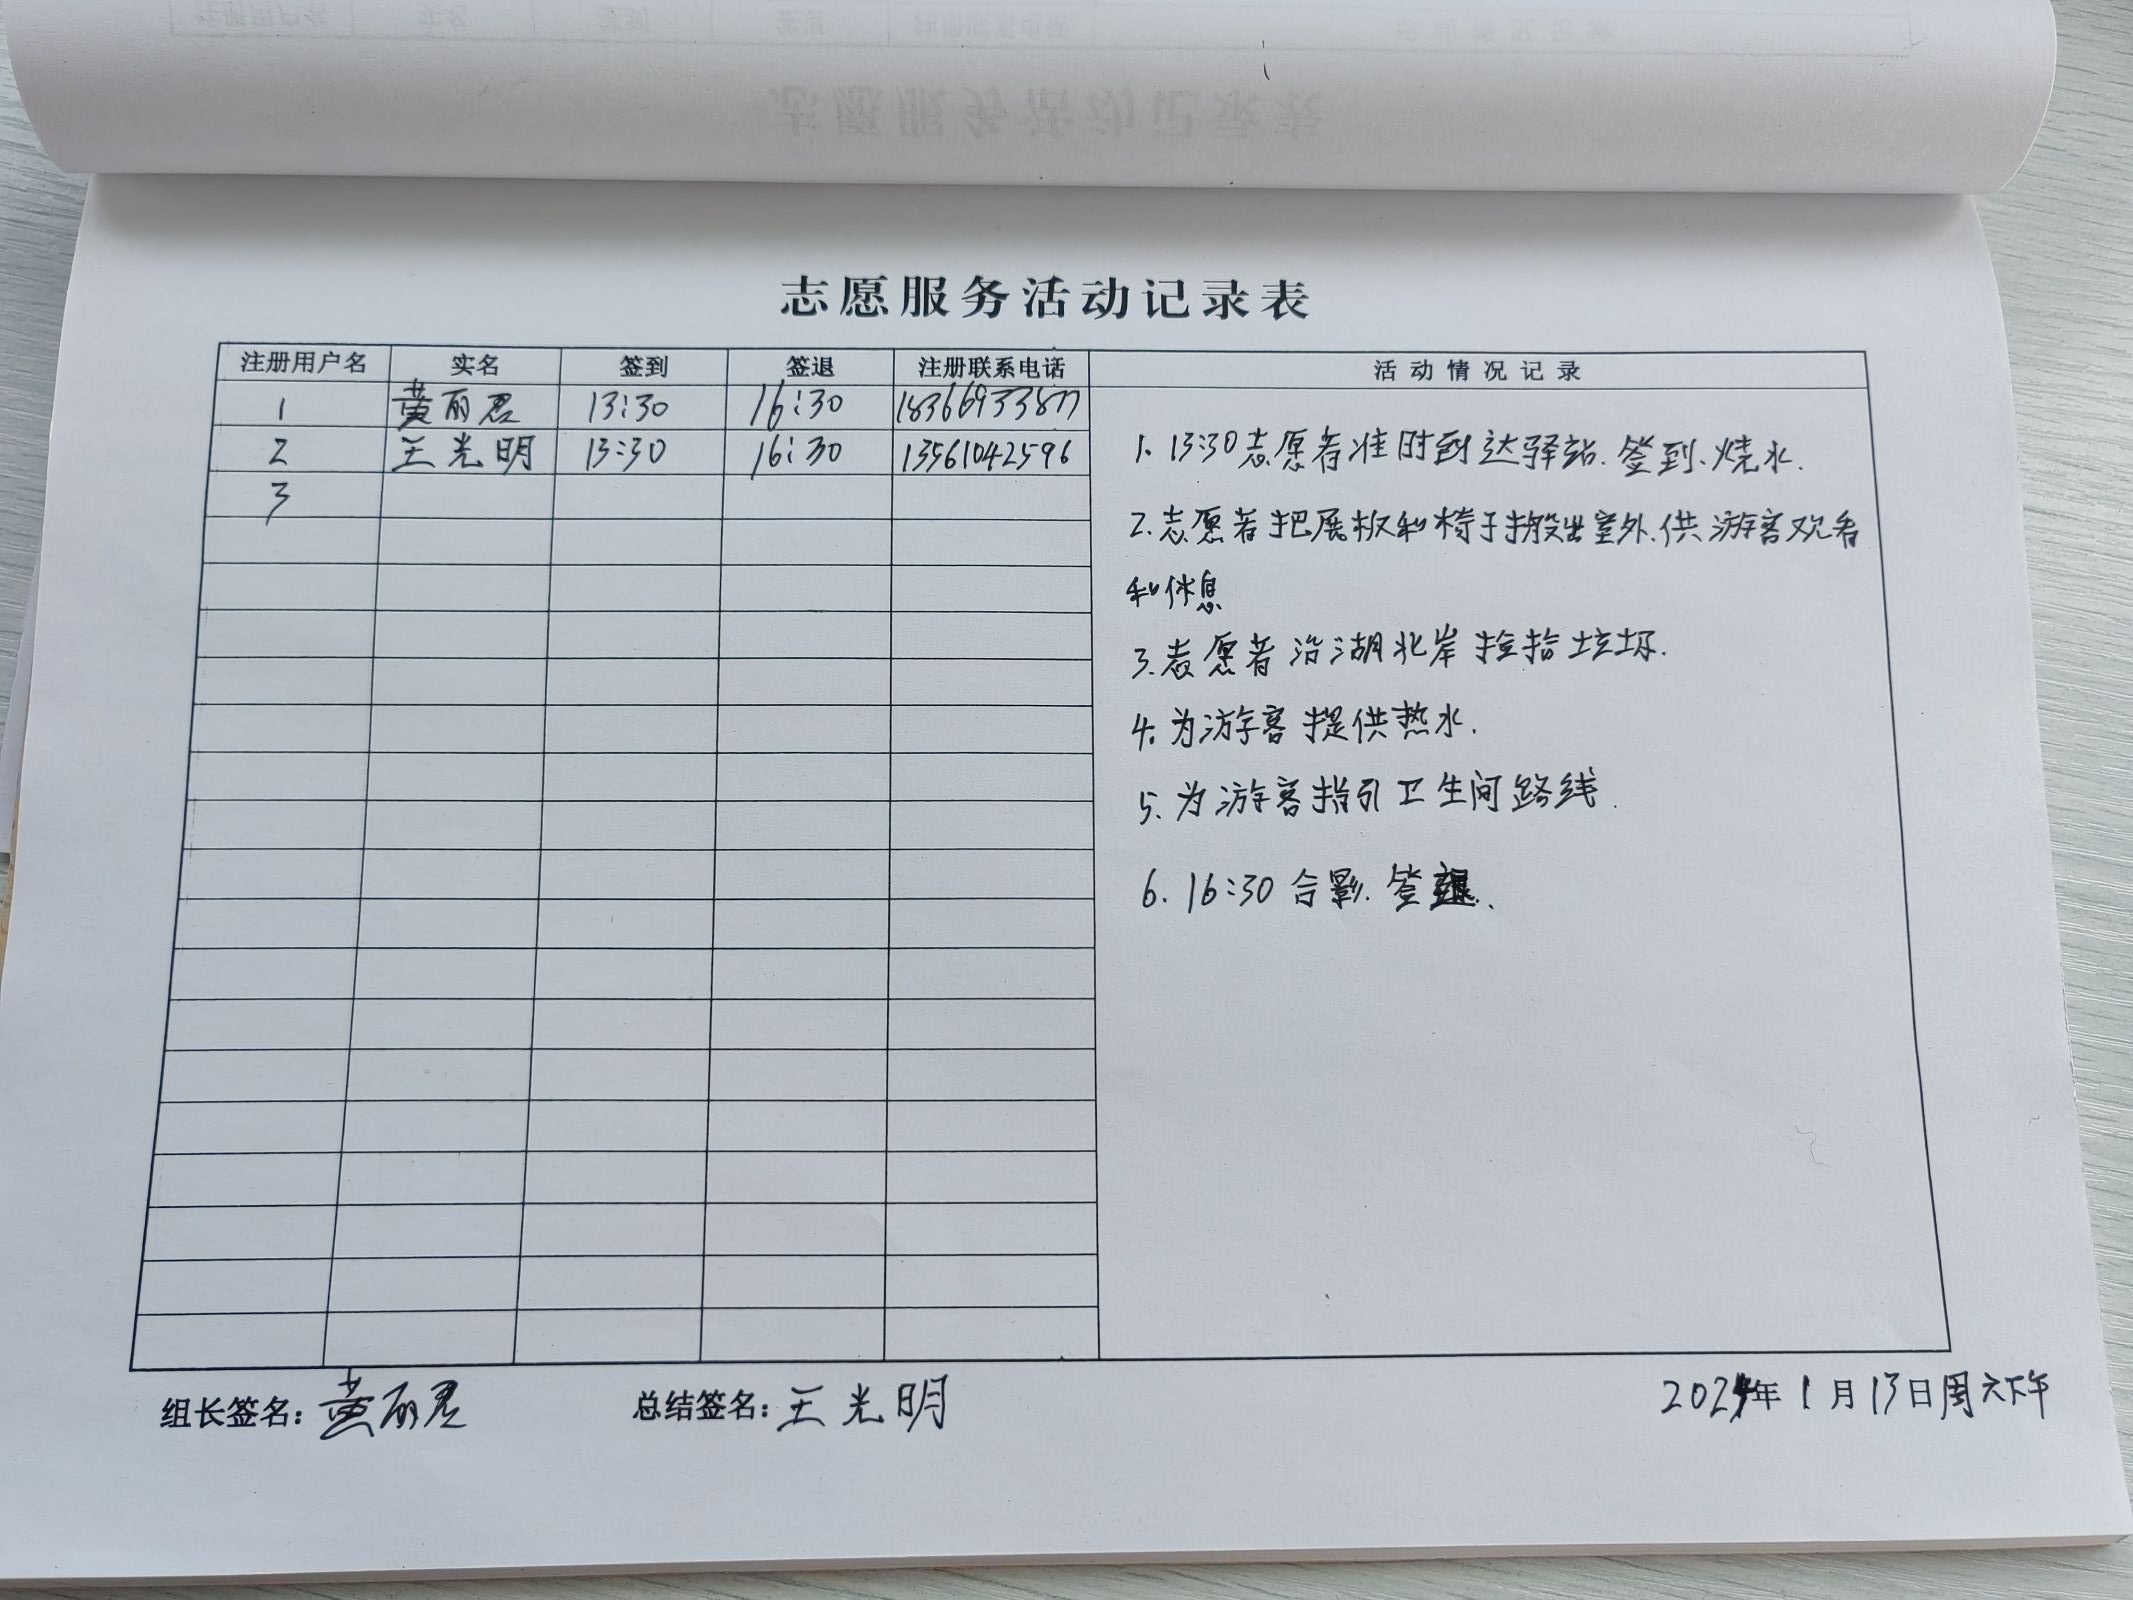 志愿服务活动记录表
注册用户名 实名 签到 签退 注册联系电话 活动情况记录
1 黄丽君 13:30 16:30 18366933877
2 王光明 13:30 16:30 13561042596
3
1. 13:30志愿者准时到达驿站.签到、烧水.
2.志愿者把展板和椅子搬出室外.供游客观看
和休息
3.志愿者沿湖北岸捡拾垃圾.
4.为游客提供热水.
5.为游客指引卫生间路线.
6. 16:30合影.签退.
组长签名:黄丽君 总结签名:王光明 2024年1月13日周六下午